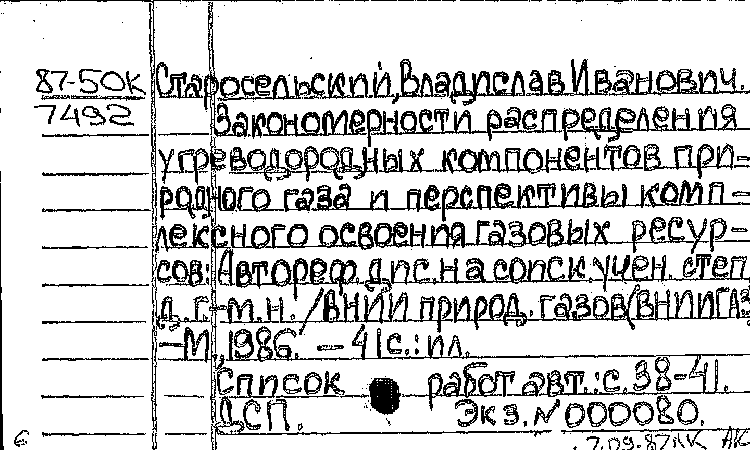 87-50К Старосельский, Владислав Иванович.
7492 Закономерности распределения
углеводородных компонентов при-
родного газа и перспективы комп-
лексного освоения газовых ресур-
сов: Автореф. дис. на соиск. учен. степ.
д.г.-м.н. / ВНИИ природ. газов (ВНИИГАЗ
—М., 1986. — 41с.: ил.
Список работ авт.: с. 38-41.
ДСП. Экз. №000080.